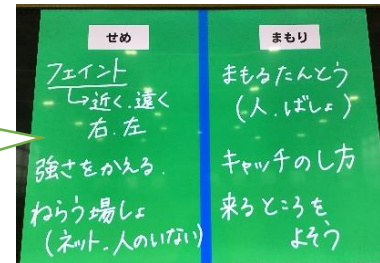 せめ
フェイント
↳近く.遠く
右.左
強さをかえる.
ねらう場しょ
(ネット.人のいない)
まもり
まもるたんとう
(人.ばしょ)
キャッチのし方
来るところを
よそう